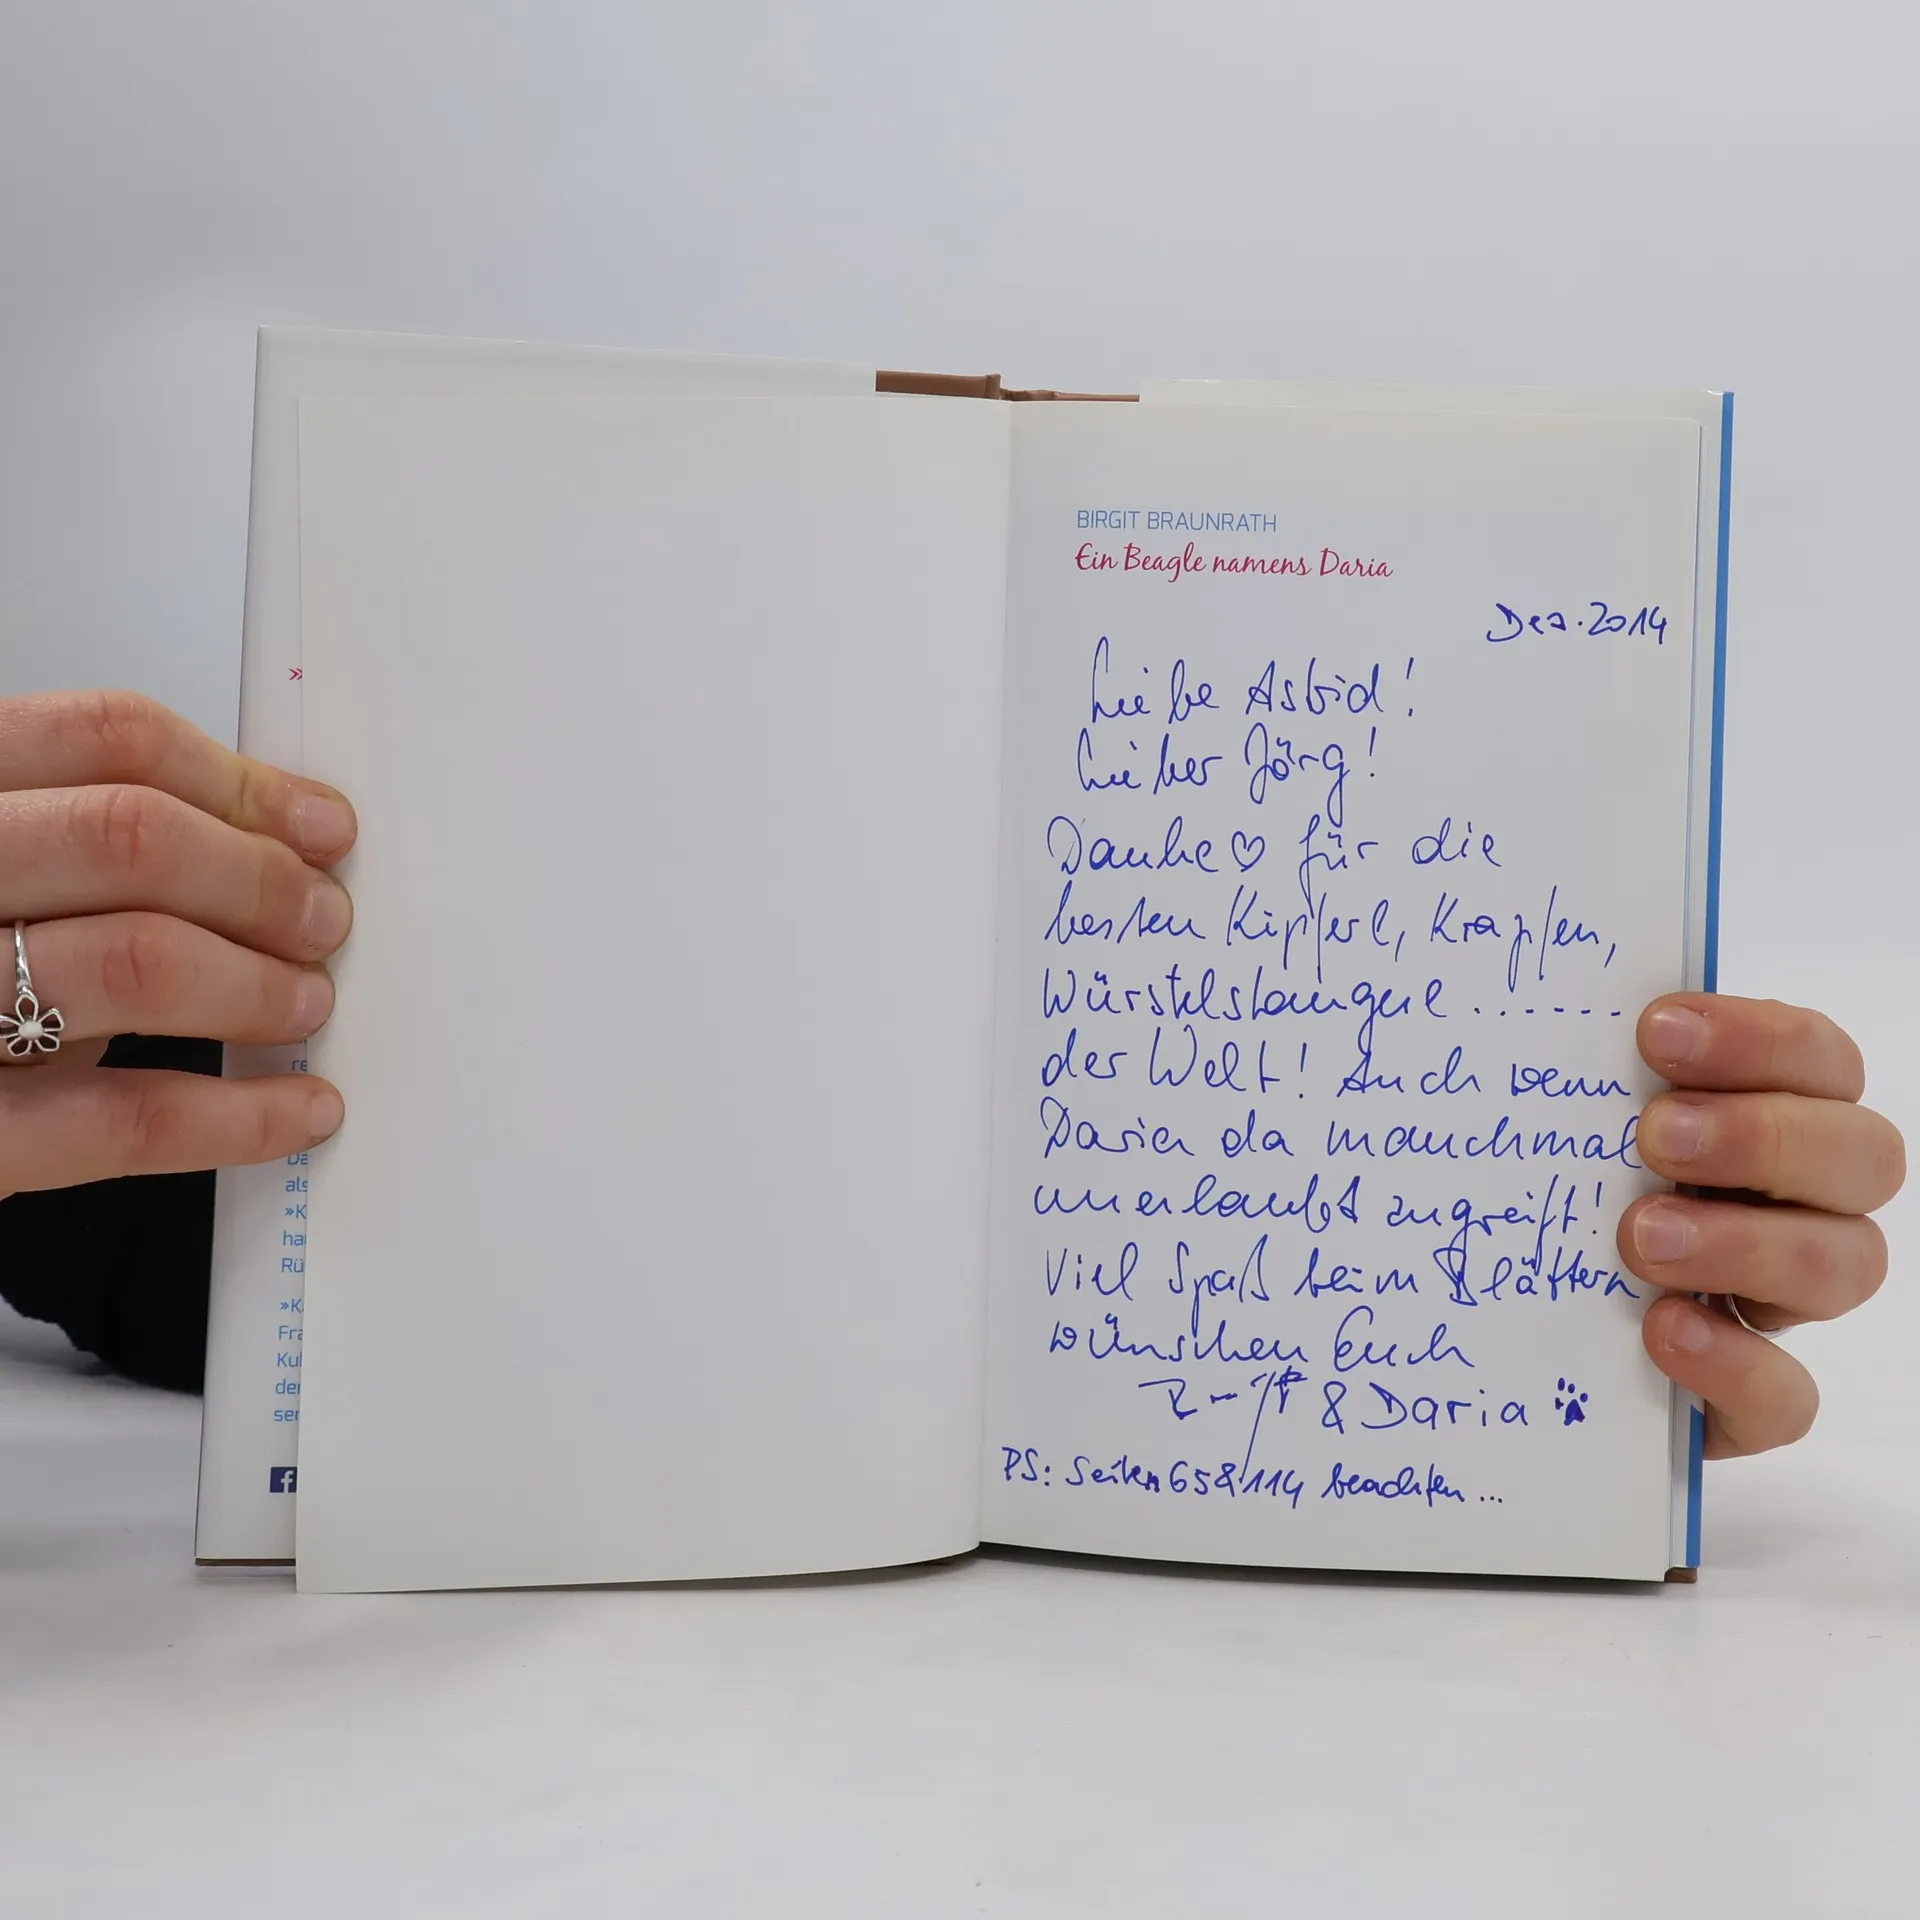 »
re
Da
als
»K
ha
Rü
»K
Fra
Kul
de
ser
f
BIRGIT BRAUNRATH
Ein Beagle namens Daria
Dez. 2014
Liebe Astrid!
Lieber Jörg!
Danke ♡ für die
besten Kipferl, Krapfen,
Würstelstangerl ......
der Welt! Auch wenn
Daria da manchmal
unerlaubt zugreift!
Viel Spaß beim Blättern
wünschen Euch
& Daria
PS: Seiten 65 & 114 beachten ...